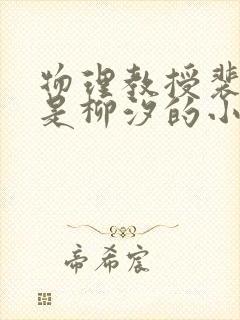 物理教授裴
是柳汐的小
帝希宸